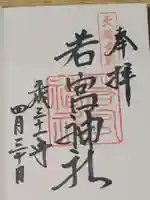 奉拝
若宮神社
平成三十一年
四月三十日